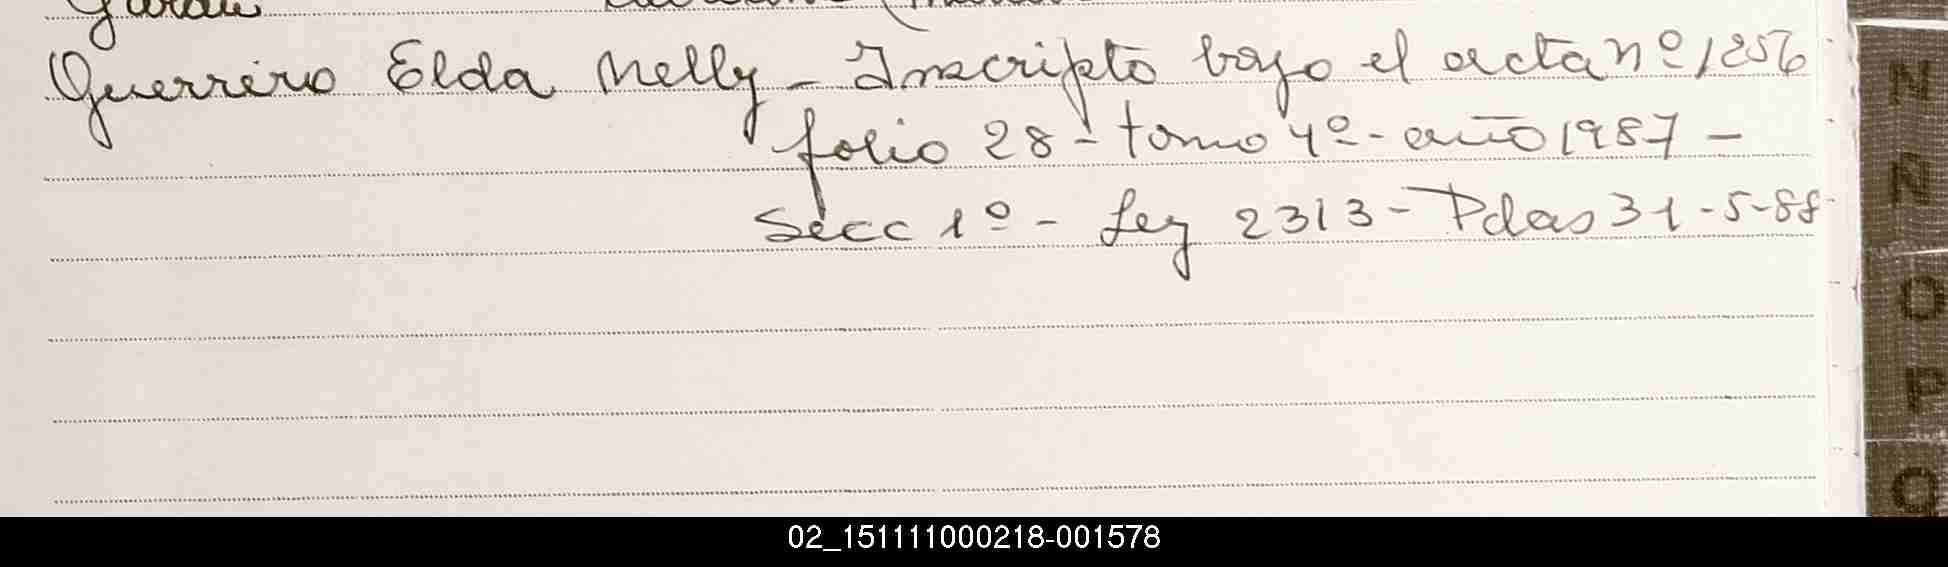 Guerrero Elda Nelly - Inscripto bajo el acta nº 1256
folio 28 - tomo 4º - año 1987 -
Secc 1º - Ley 2313 - Pdas 31-5-88
N
Ñ
O
P
Q
02_151111000218-001578